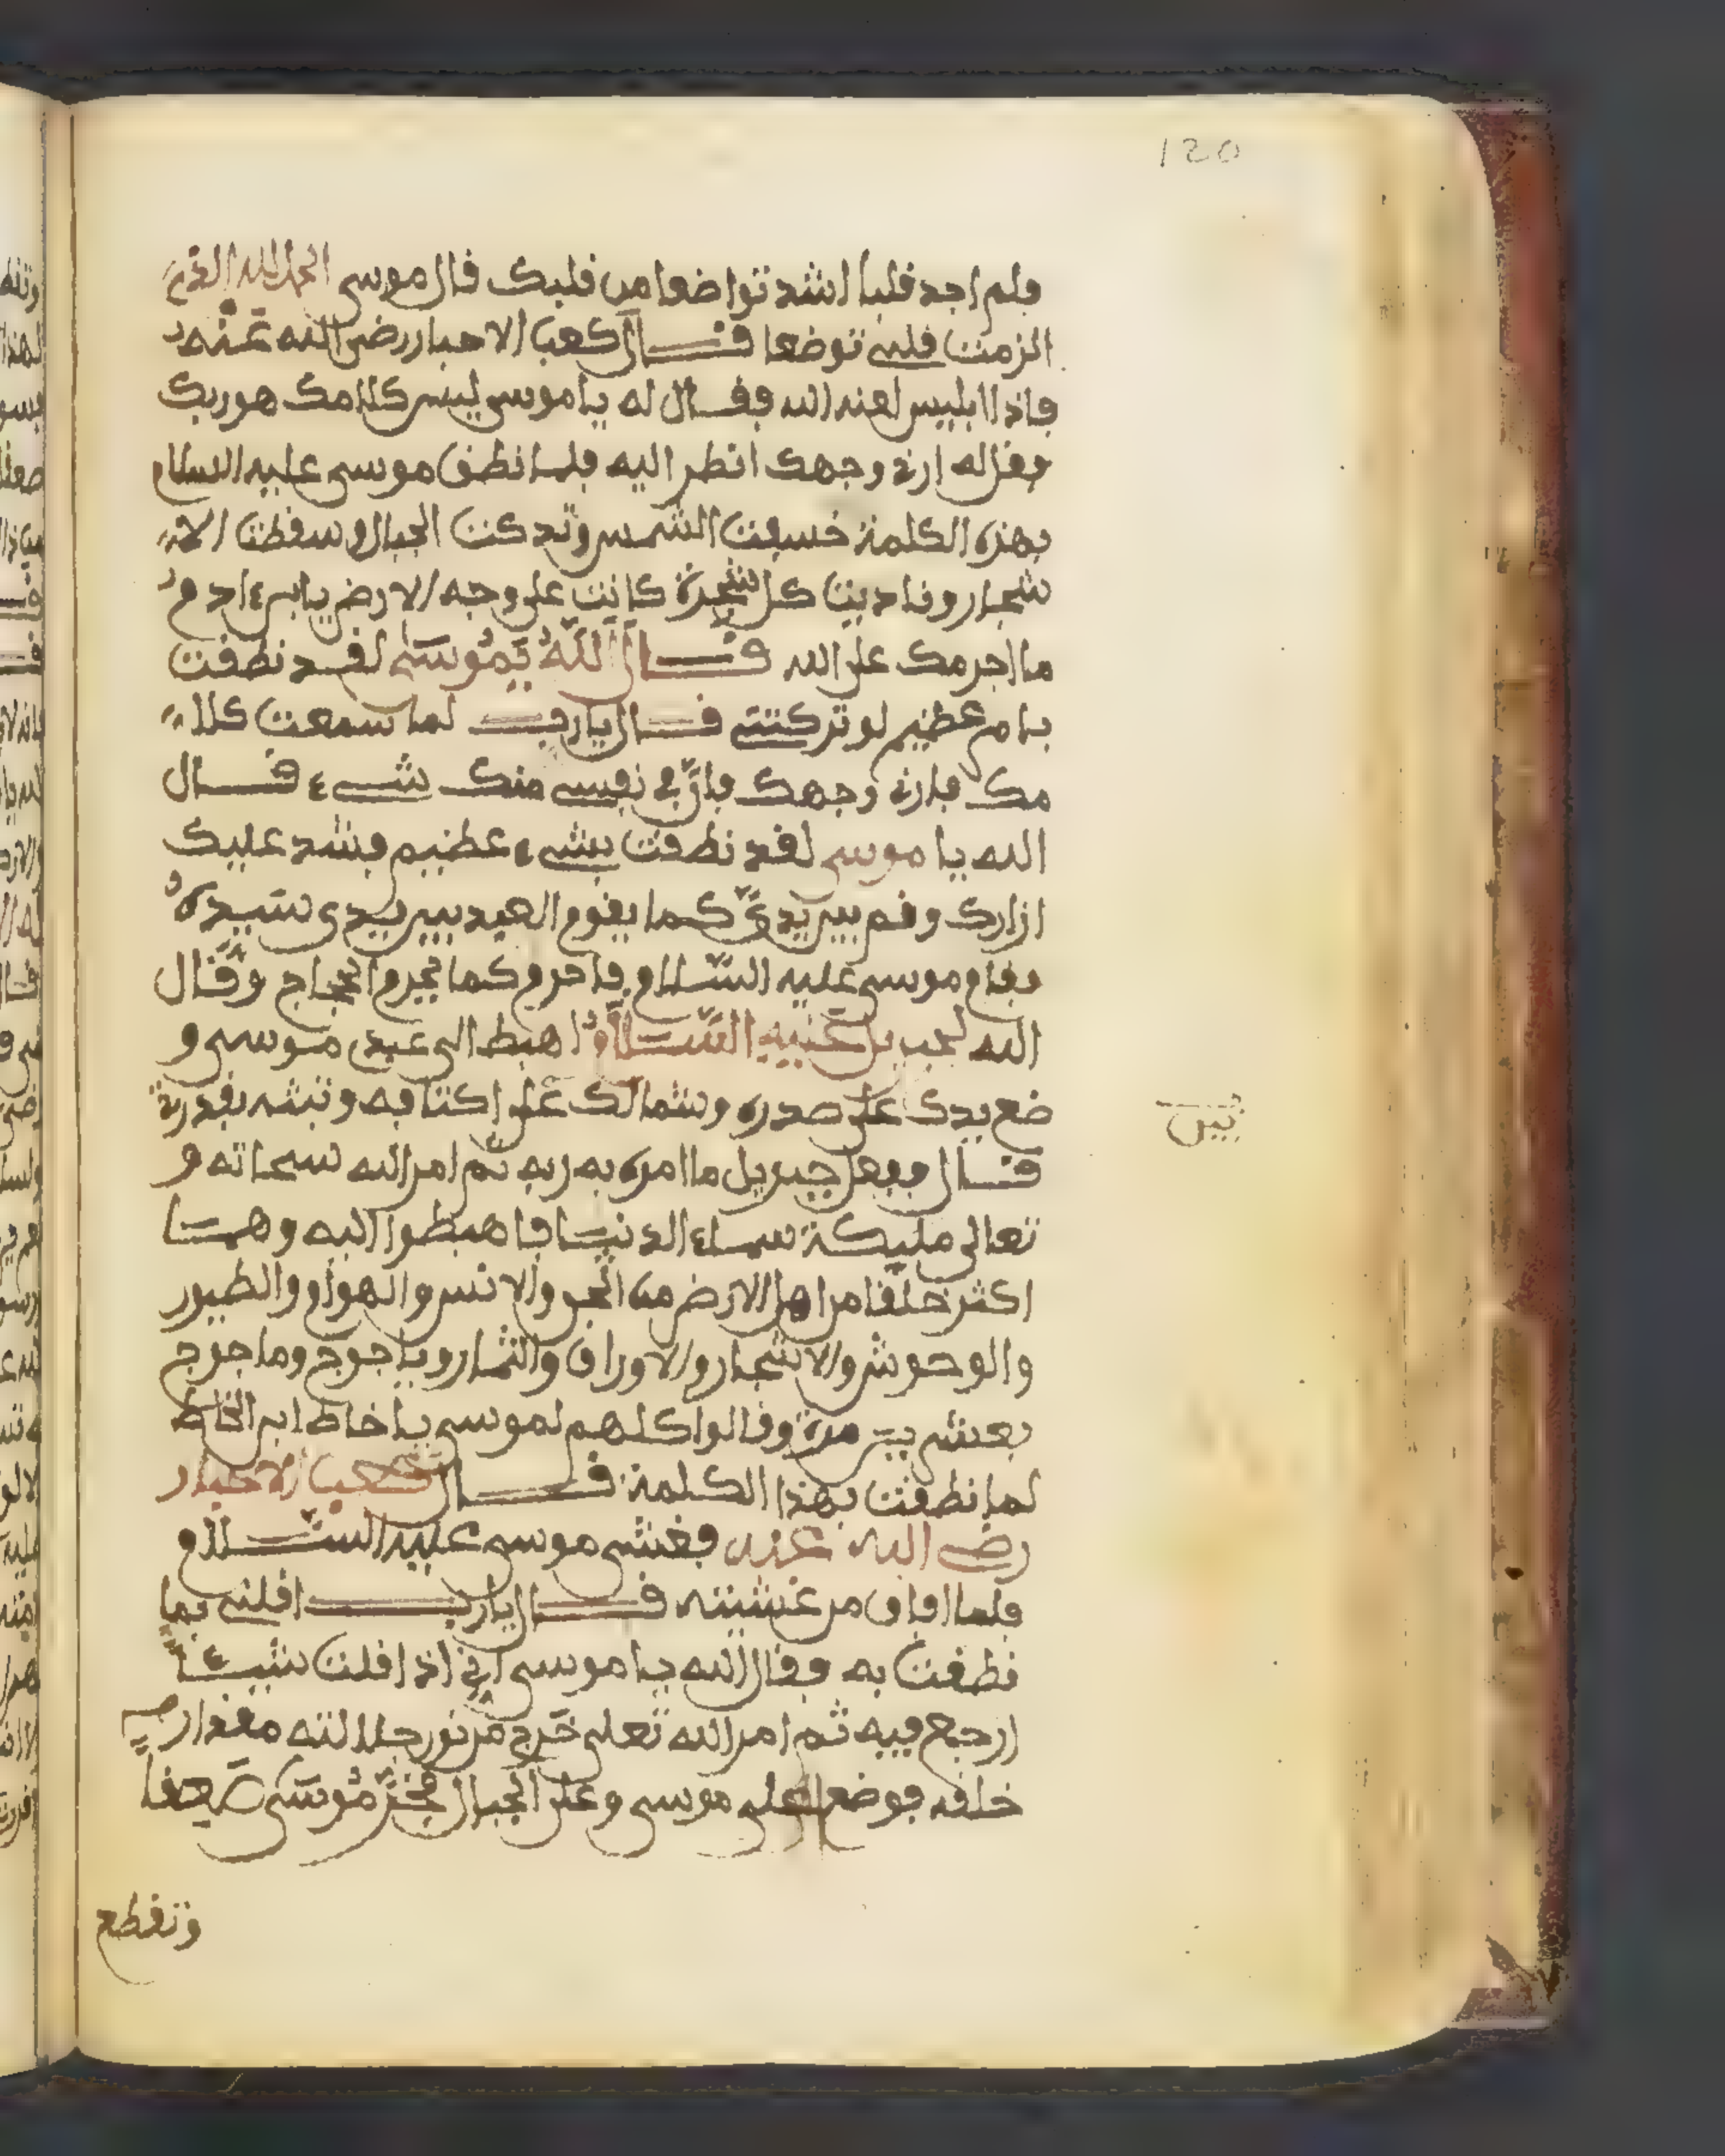 120
فلم اجد قلبا اشد تواضعا من قلبك قال موسى الحمد لله الذي
الزمت قلبي توضعا قال كعب الاحبار رضي الله عنه
فاذا ابليس لعنه الله فقال له يا موسى ليس كلامك هو ربك
فقل له ارني وجهك انظر اليه فلما نطق موسى عليه السلام
بهذه الكلمة خسفت الشمس وتدكت الجبال وسقطت الا
شجار وناديت كل شجرة كانت على وجه الارض يابن ءادم
ما اجرمك على الله قال الله يموسى لقد نطقت
بامر عظيم لو تركتني قال يارب لما سمعت كلا
مك فارني وجهك فان في نفسي منك شيء قال
الله يا موسى لقد نطقت بشيء عظيم فشد عليك
ازارك وقم بين يدي كما يقوم العبد بين يدي سيده
فقام موسى عليه السلام فاحرم كما يحرم الحجاج وقال
الله لجبريل عليه السلام اهبط الى عبدي موسى و
ضع يدك على صدره وشمالك على اكتافه وثبته بقدرتي
قال ففعل جبريل ما امره به ربه ثم امر الله سبحانه و
تعالى مليكة سماء الدنيا فاهبطوا اليه وهم
اكثر خلقا من اهل الارض من الجن والانس والهوام والطيور
والوحوش والاشجار والاوراق والثمار وياجوج وماجوج
بعشرين مرة وقالوا كلهم لموسى يا خاطي ابن الخاطي
لما نطقت بهذا الكلمة قال كعب الاحبار
رضي الله عنه فغشي موسى عليه السلام
فلما افاق من غشيته قال يارب اقلني بما
نطقت به فقال الله يا موسى اني اذا قلت شيئا
ارجع فيه ثم امر الله تعلى خرج من نور جلالته مقدار
خلقه فوضع على موسى وعلى الجبال فخر موسى صعقا
وتقطع